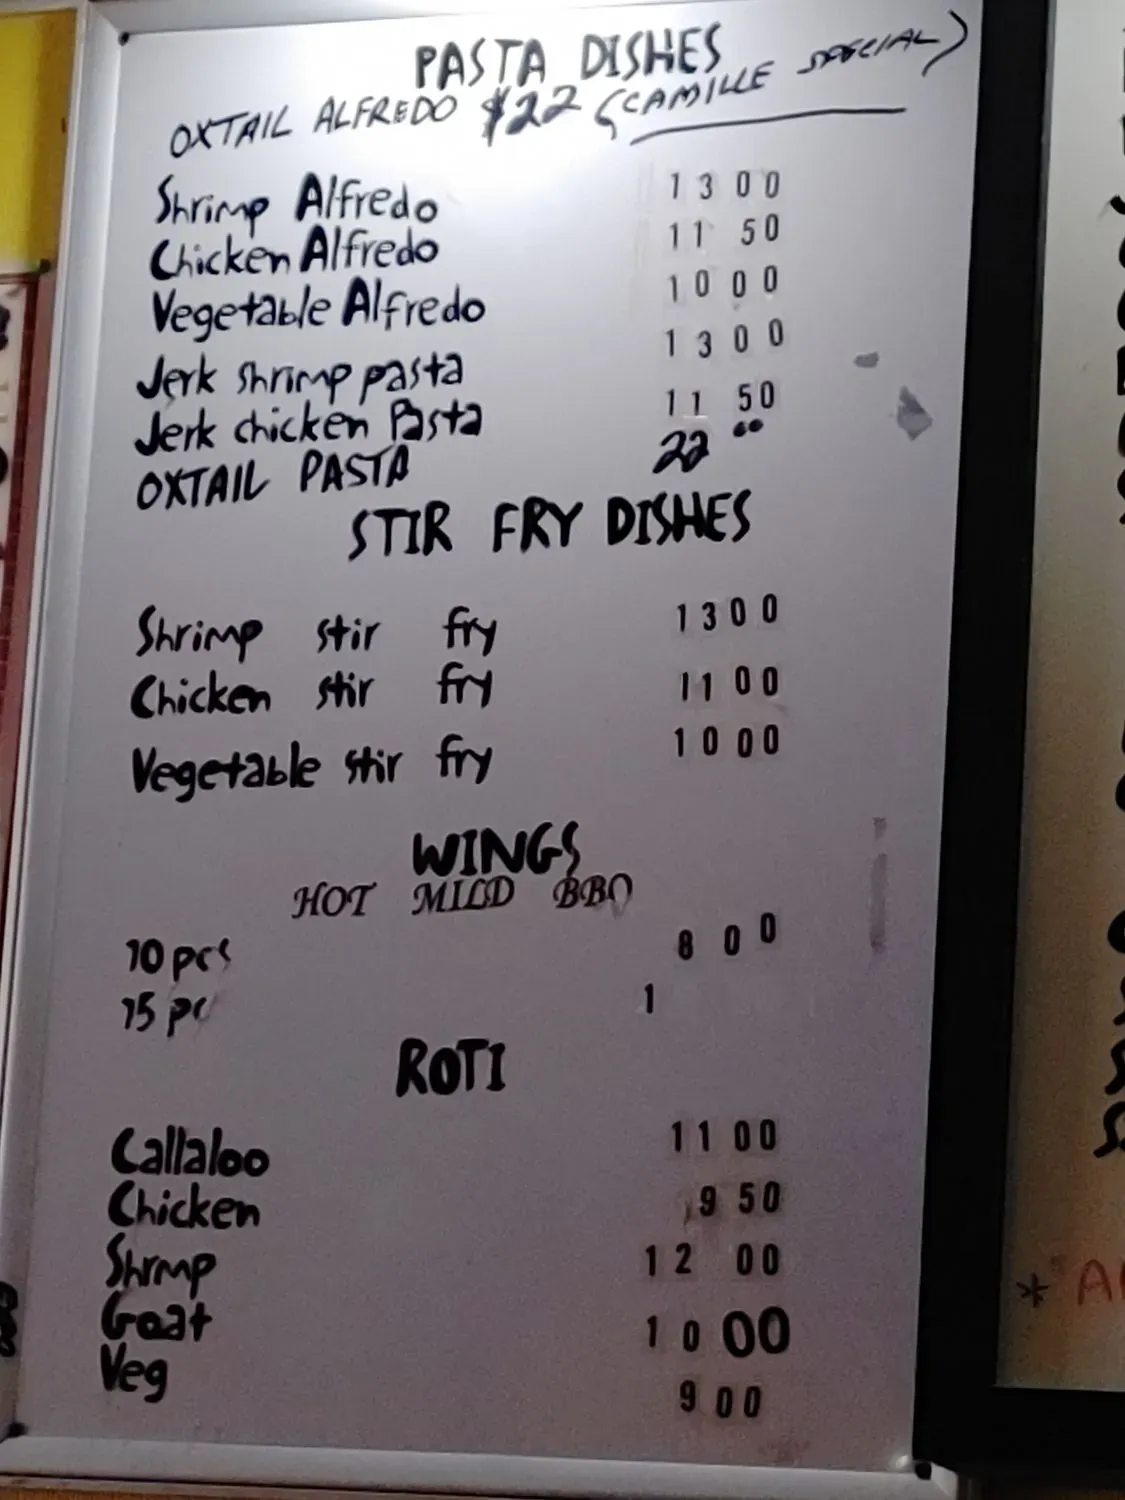 PASTA DISHES
OXTAIL ALFREDO $22 (CAMILLE SPECIAL)
Shrimp Alfredo 13 00
Chicken Alfredo 11 50
Vegetable Alfredo 10 00
Jerk shrimp pasta 13 00
Jerk chicken Pasta 11 50
OXTAIL PASTA 22 00
STIR FRY DISHES
Shrimp stir fry 13 00
Chicken stir fry 11 00
Vegetable stir fry 10 00
WINGS
HOT MILD BBQ
10 pcs 8 00
15 pc 1
ROTI
Callaloo 11 00
Chicken 9 50
Shrmp 12 00
Goat 10 00
Veg 9 00